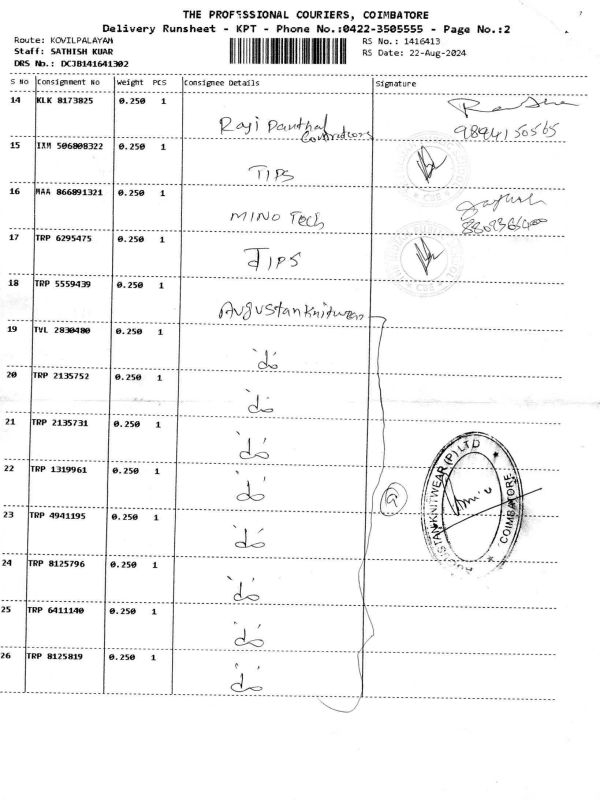 THE PROFESSIONAL COURIERS, COIMBATORE
Delivery Runsheet - KPT - Phone No.:0422-3505555 - Page No.:2
Route: KOVILPALAYAM
RS No.: 1416413
Staff: SATHISH KUAR
RS Date: 22-Aug-2024
DRS No.: DCJB141641302
S No Consignment No Weight PCS Consignee Details Signature
14 KLK 8173825 0.250 1
Raji Panthal
9894150565
15 IXM 506808322 0.250 1
TIPS
16 MAA 866891321 0.250 1
MINO Tech
17 TRP 6295475 0.250 1
TIPS
18 TRP 5559439 0.250 1
Augustan Knitwear
19 TVL 2830480 0.250 1
do
20 TRP 2135752 0.250 1
do
21 TRP 2135731 0.250 1
do
22 TRP 1319961 0.250 1
do
23 TRP 4941195 0.250 1
do
24 TRP 8125796 0.250 1
do
25 TRP 6411140 0.250 1
do
26 TRP 8125819 0.250 1
do
9
KNITWEAR (P) LTD
COIMBATORE